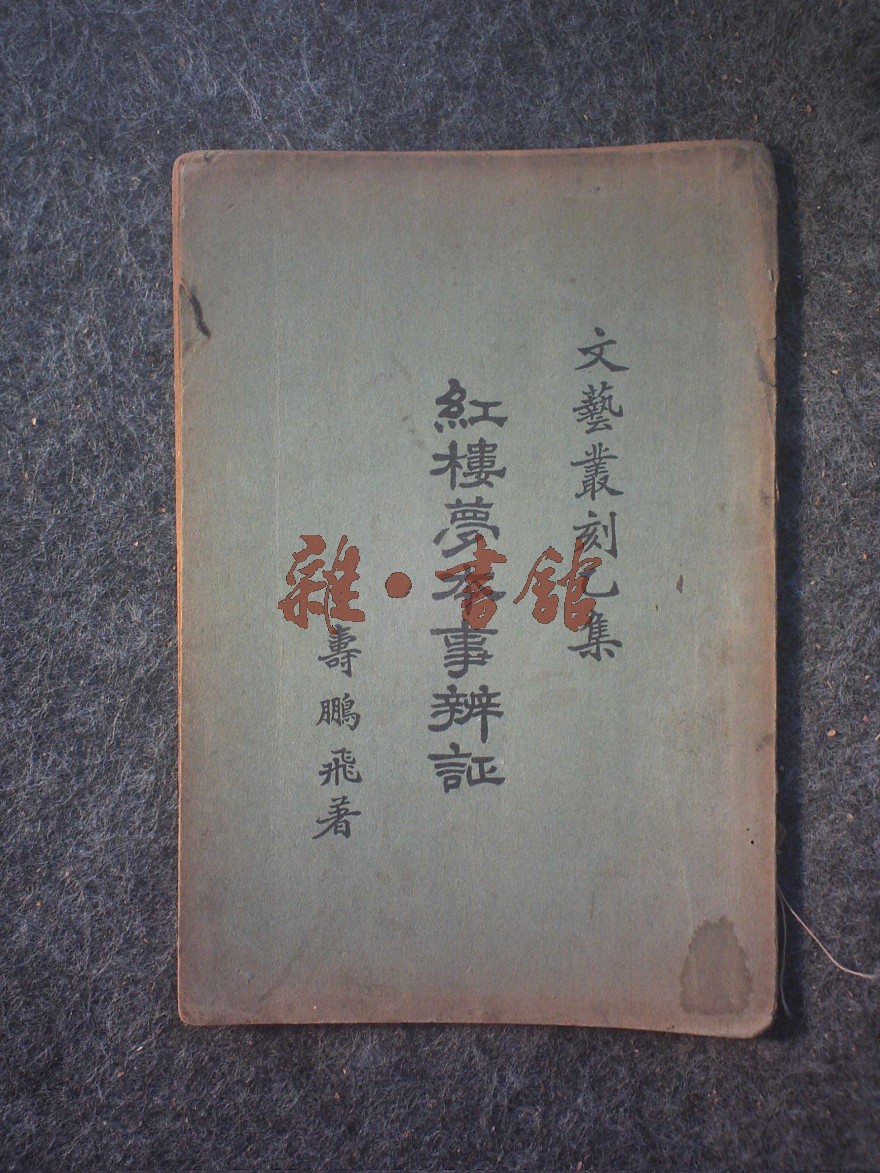 文藝叢刻乙集
紅樓夢本事辨証
壽鵬飛著
雜·書館